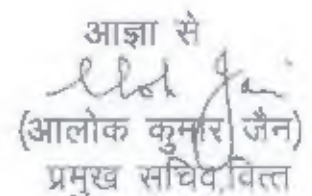 आज्ञा से
(आलोक कुमार जैन)
प्रमुख सचिव,वित्त